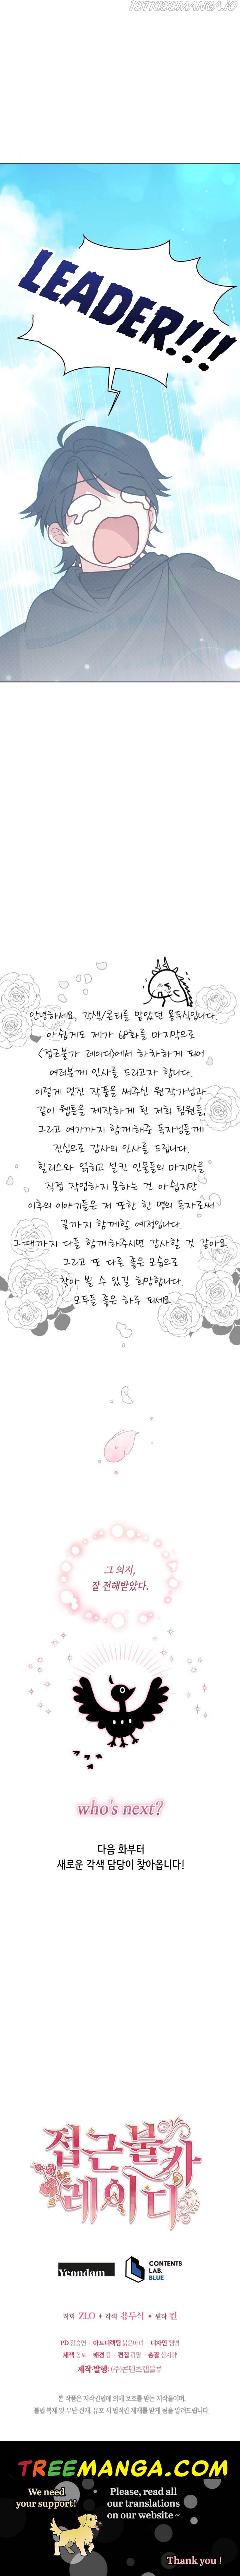 1STKISSMANGA.IO
LEADER!!!
안녕하세요, 각색/콘티를 맡았던 용두식입니다.
아쉽게도 제가 68화를 마지막으로
<접근불가 레이디>에서 하차하게 되어
여러분께 인사를 드리고자 합니다.
이렇게 멋진 작품을 써주신 원작가님과
같이 웹툰을 제작하게 된 저희 팀원들,
그리고 여기까지 함께해준 독자님들께
진심으로 감사의 인사를 드립니다.
힐리스와 얽히고 설킨 인물들의 마지막을
직접 작업하지 못하는 건 아쉽지만
이후의 이야기들은 저 또한 한 명의 독자로써
끝까지 함께할 예정입니다.
그때까지 다들 함께해주시면 감사할 것 같아요.
그리고 또 다른 좋은 모습으로
찾아 뵐 수 있길 희망합니다.
모두들 좋은 하루 되세요.
그 의지,
잘 전해받았다.
who's next?
다음 화부터
새로운 각색 담당이 찾아옵니다!
접근불가
레이디
Yeondam
CONTENTS
LAB.
BLUE
작화 ZLO ♦ 각색 용두식 ♦ 원작 킨
PD 장승연 · 아트디렉팅 붉은바녀 · 디자인 햄햄
채색 돔보 · 배경 김 · 편집 광광 · 총괄 신지함
제작·발행: (주)콘텐츠랩블루
본 작품은 저작권법에 의해 보호를 받는 저작물이며,
불법 복제 및 무단 전재, 유포 시 법적인 제재를 받게 됨을 알려드립니다.
TREEMANGA.COM
We need
your support!
Please, read all
our translations
on our website ~
Thank you !